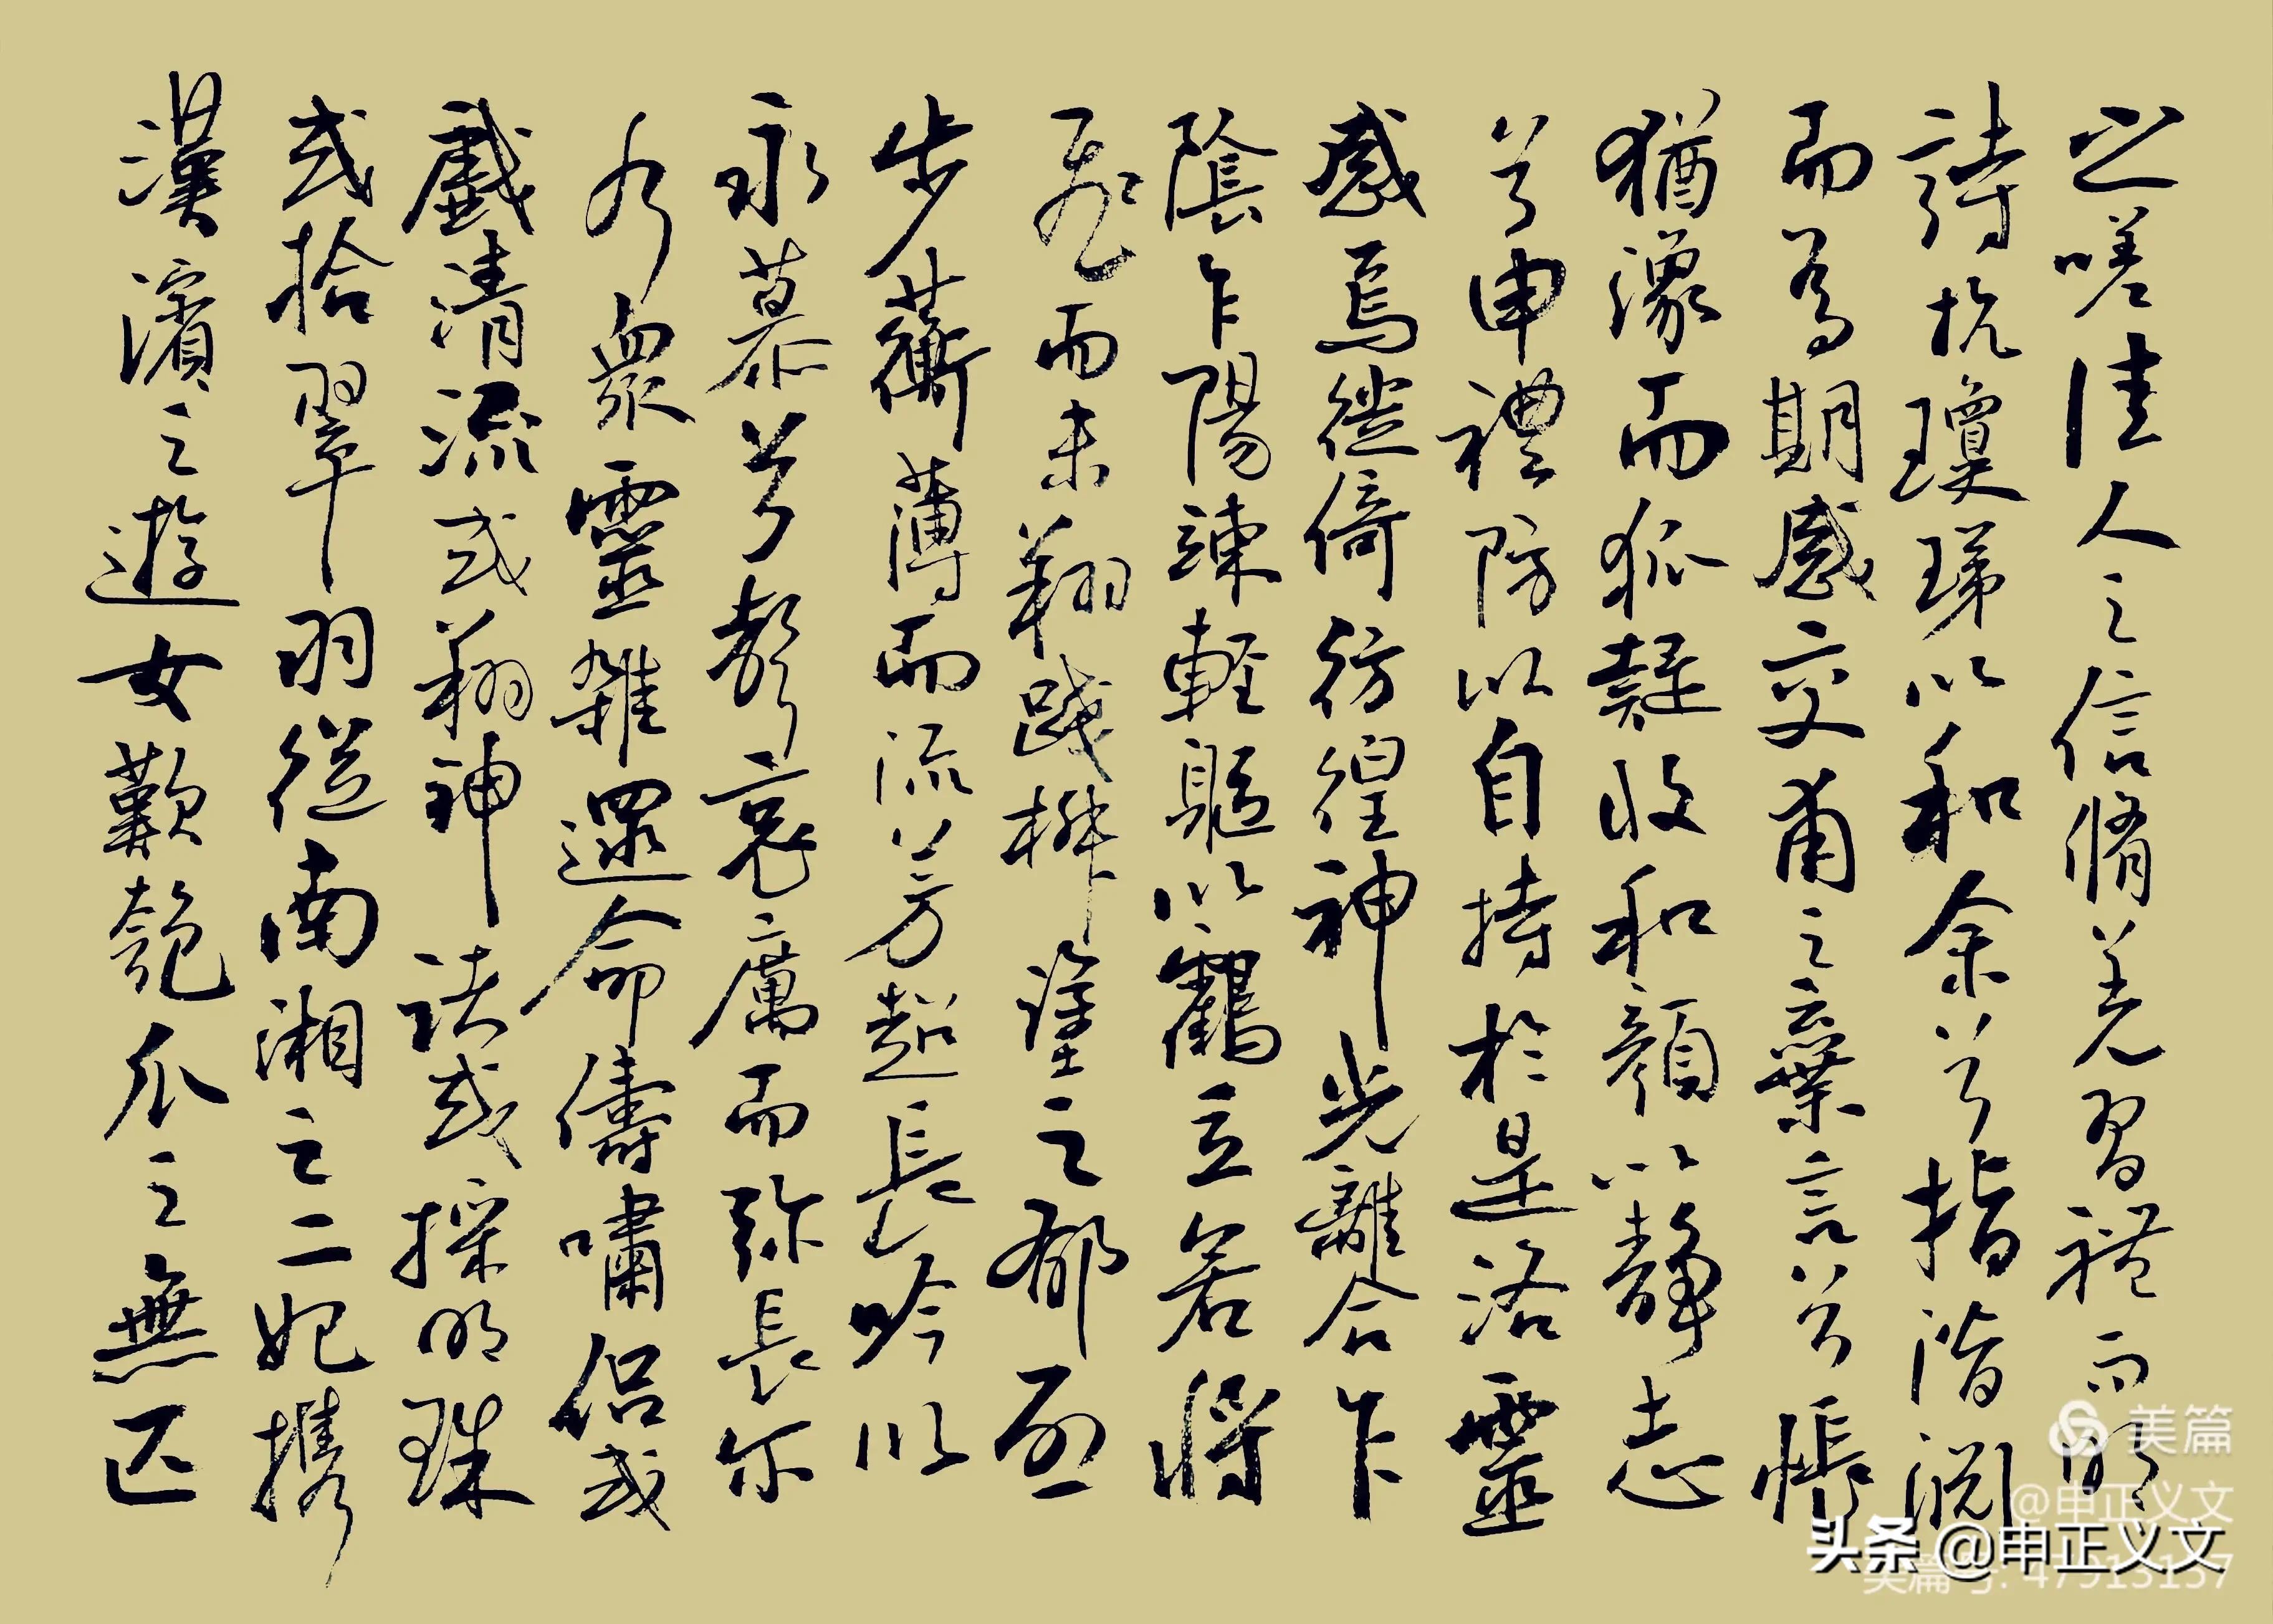 之嗟佳人之信脩羌習禮而明
詩抗瓊珶以和余兮指潛渊
而為期感交甫之棄言兮悵
猶豫而狐疑收和顔以靜志
兮申禮防以自持於是洛靈
感焉徙倚彷徨神光離合乍
陰乍陽竦軽軀以鶴立若將
飛而未翔踐椒塗之郁烈
步蘅薄而流芳超長吟以
永慕兮聲哀厲而弥長尔
乃衆靈雜遝命儔嘯侶或
戲清流或翔神渚或採明珠
或拾翠羽從南湘之二妃携
漢濱之遊女歎匏瓜之無匹
美篇
@申正义文
头条 @申正义文
美篇号: 47913137